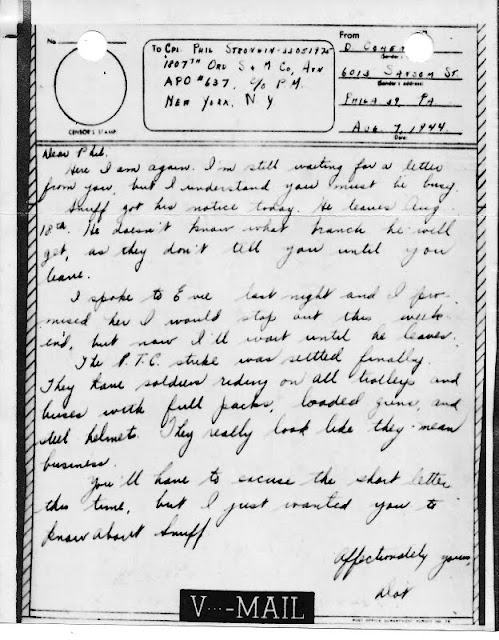 No.
CENSOR'S STAMP
To Cpl. Phil Stronkin-33051975
1807th Ord S & M Co, Avn
APO #637, c/o P.M.
New York, N Y
From
D Cohen
(Sender's name)
6013 Sansom St.
(Sender's address)
Phila 39, Pa
Aug. 7, 1944
(Date)
Dear Phil,
Here I am again. I'm still waiting for a letter
from you, but I understand you must be busy.
Snuff got his notice today. He leaves Aug
18th. He doesn't know what branch he will
get, as they don't tell you until you
leave.
I spoke to Eve last night and I pro-
mised her I would stop out this week
end, but now I'll wait until he leaves.
The P.T.C. strike was settled finally.
They have soldiers riding on all trolleys and
buses with full packs, loaded guns, and
steel helmets. They really look like they mean
business.
You'll have to excuse the short letter
this time, but I just wanted you to
know about Snuff
Affectionately yours,
Dot
V···-MAIL
POST OFFICE DEPARTMENT PERMIT NO.